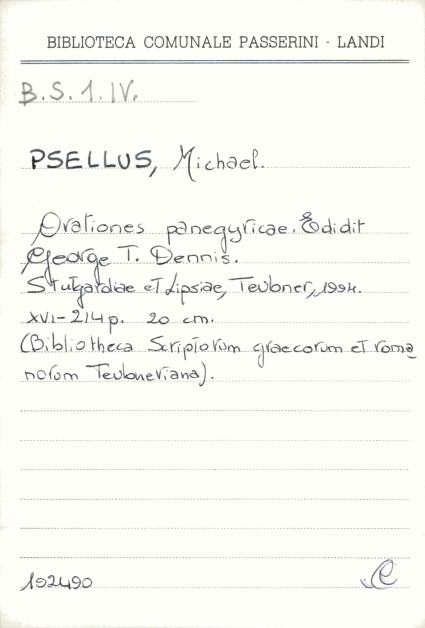 BIBLIOTECA COMUNALE PASSERINI - LANDI
B.S.1.IV.
PSELLUS, Michael.
Orationes panegyricae. Edidit
George T. Dennis.
Stutgardiae et Lipsiae, Teubner, 1994.
XVI-214 p. 20 cm.
(Bibliotheca Scriptorum graecorum et roma
norum Teubneriana).
192490